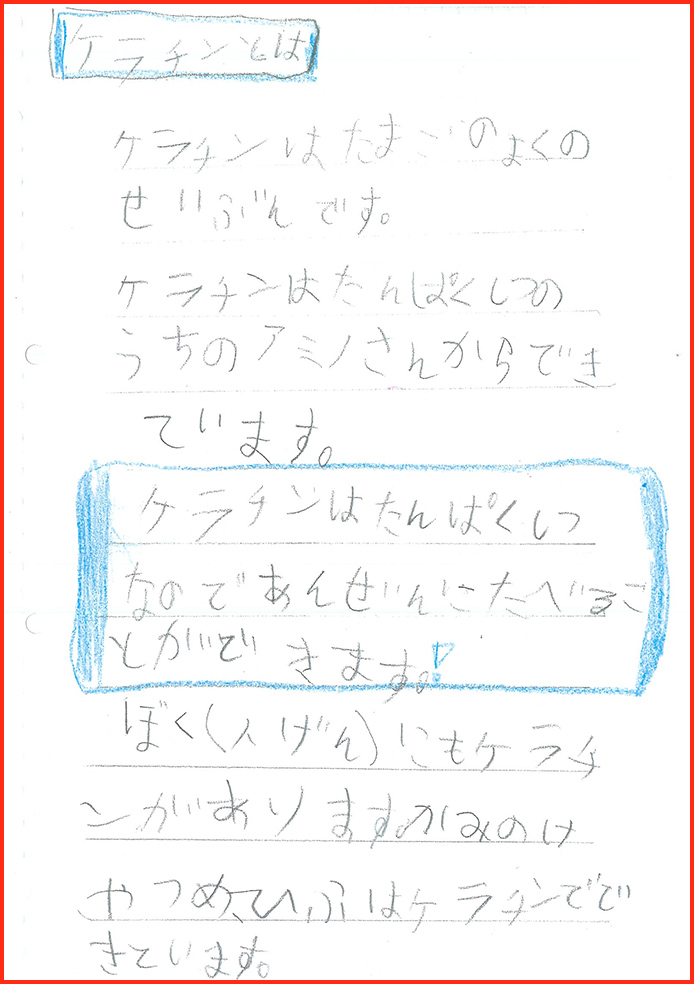 ケラチンとは
ケラチンはたまごのまくの
せいぶんです。
ケラチンはたんぱくしつの
うちのアミノさんからでき
ています。
ケラチンはたんぱくしつ
なのであんぜんにたべるこ
とができます。!
ぼく(人げん)にもケラチ
ンがあります。かみのけ
やつめ、ひふはケラチンでで
きています。